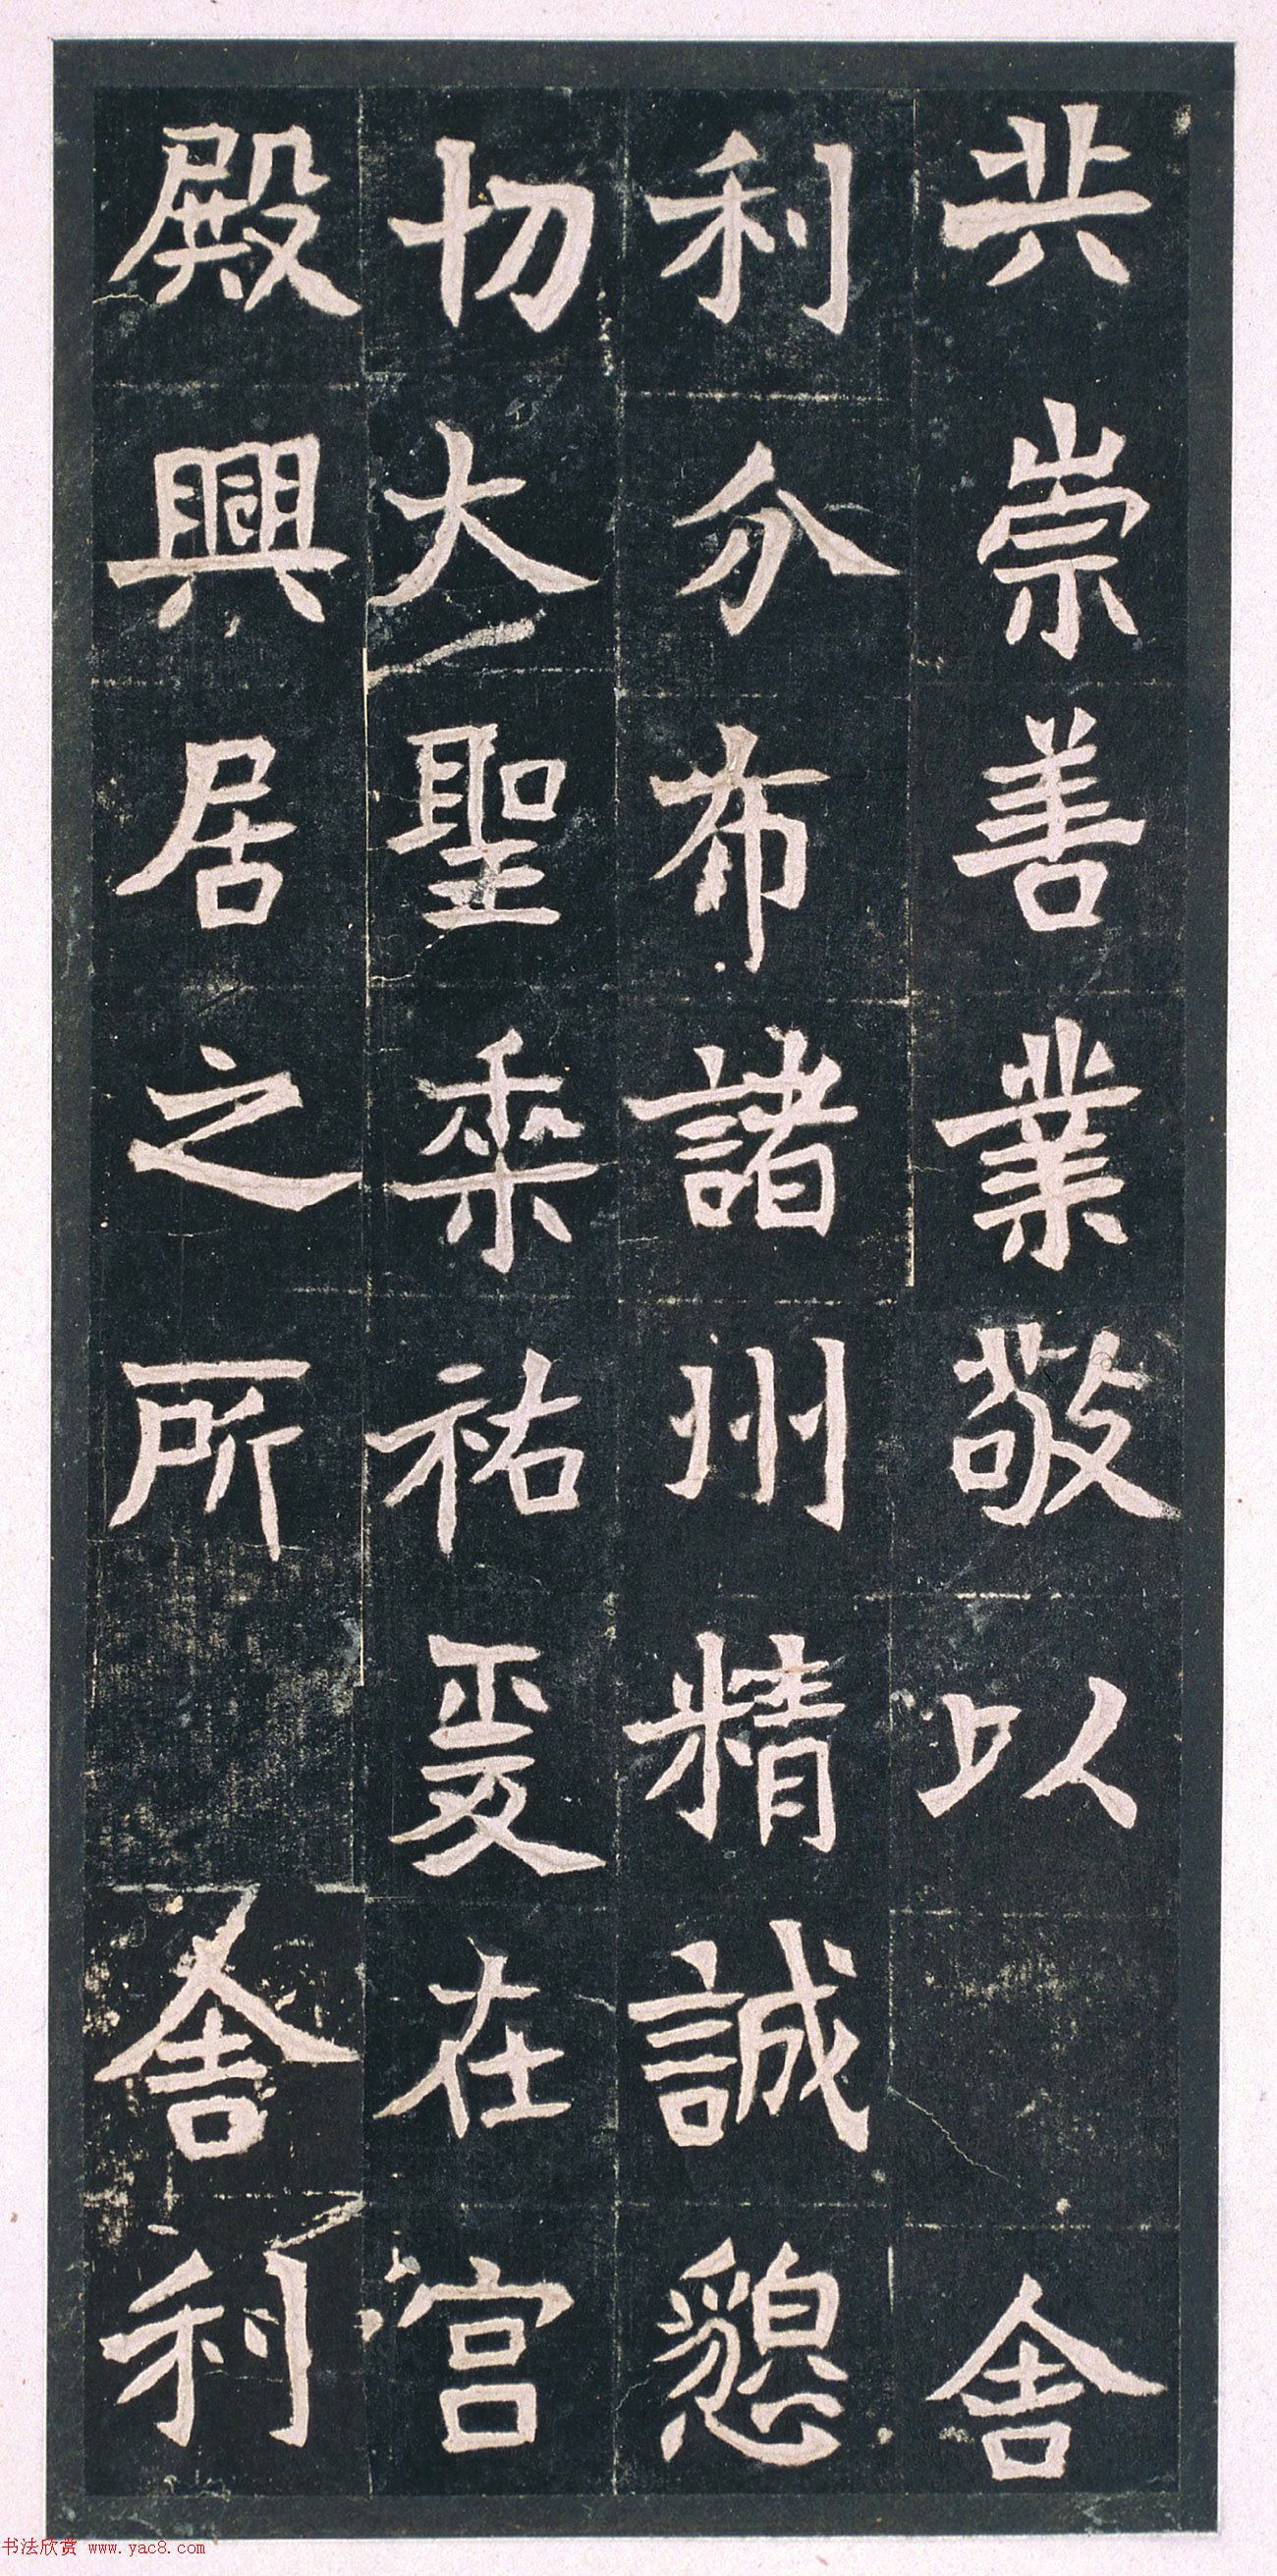 共崇善業敬以舍
利分布諸州精誠懇
切大聖垂祐爰在宫
殿興居之所舍利
书法欣赏 www.yac8.com